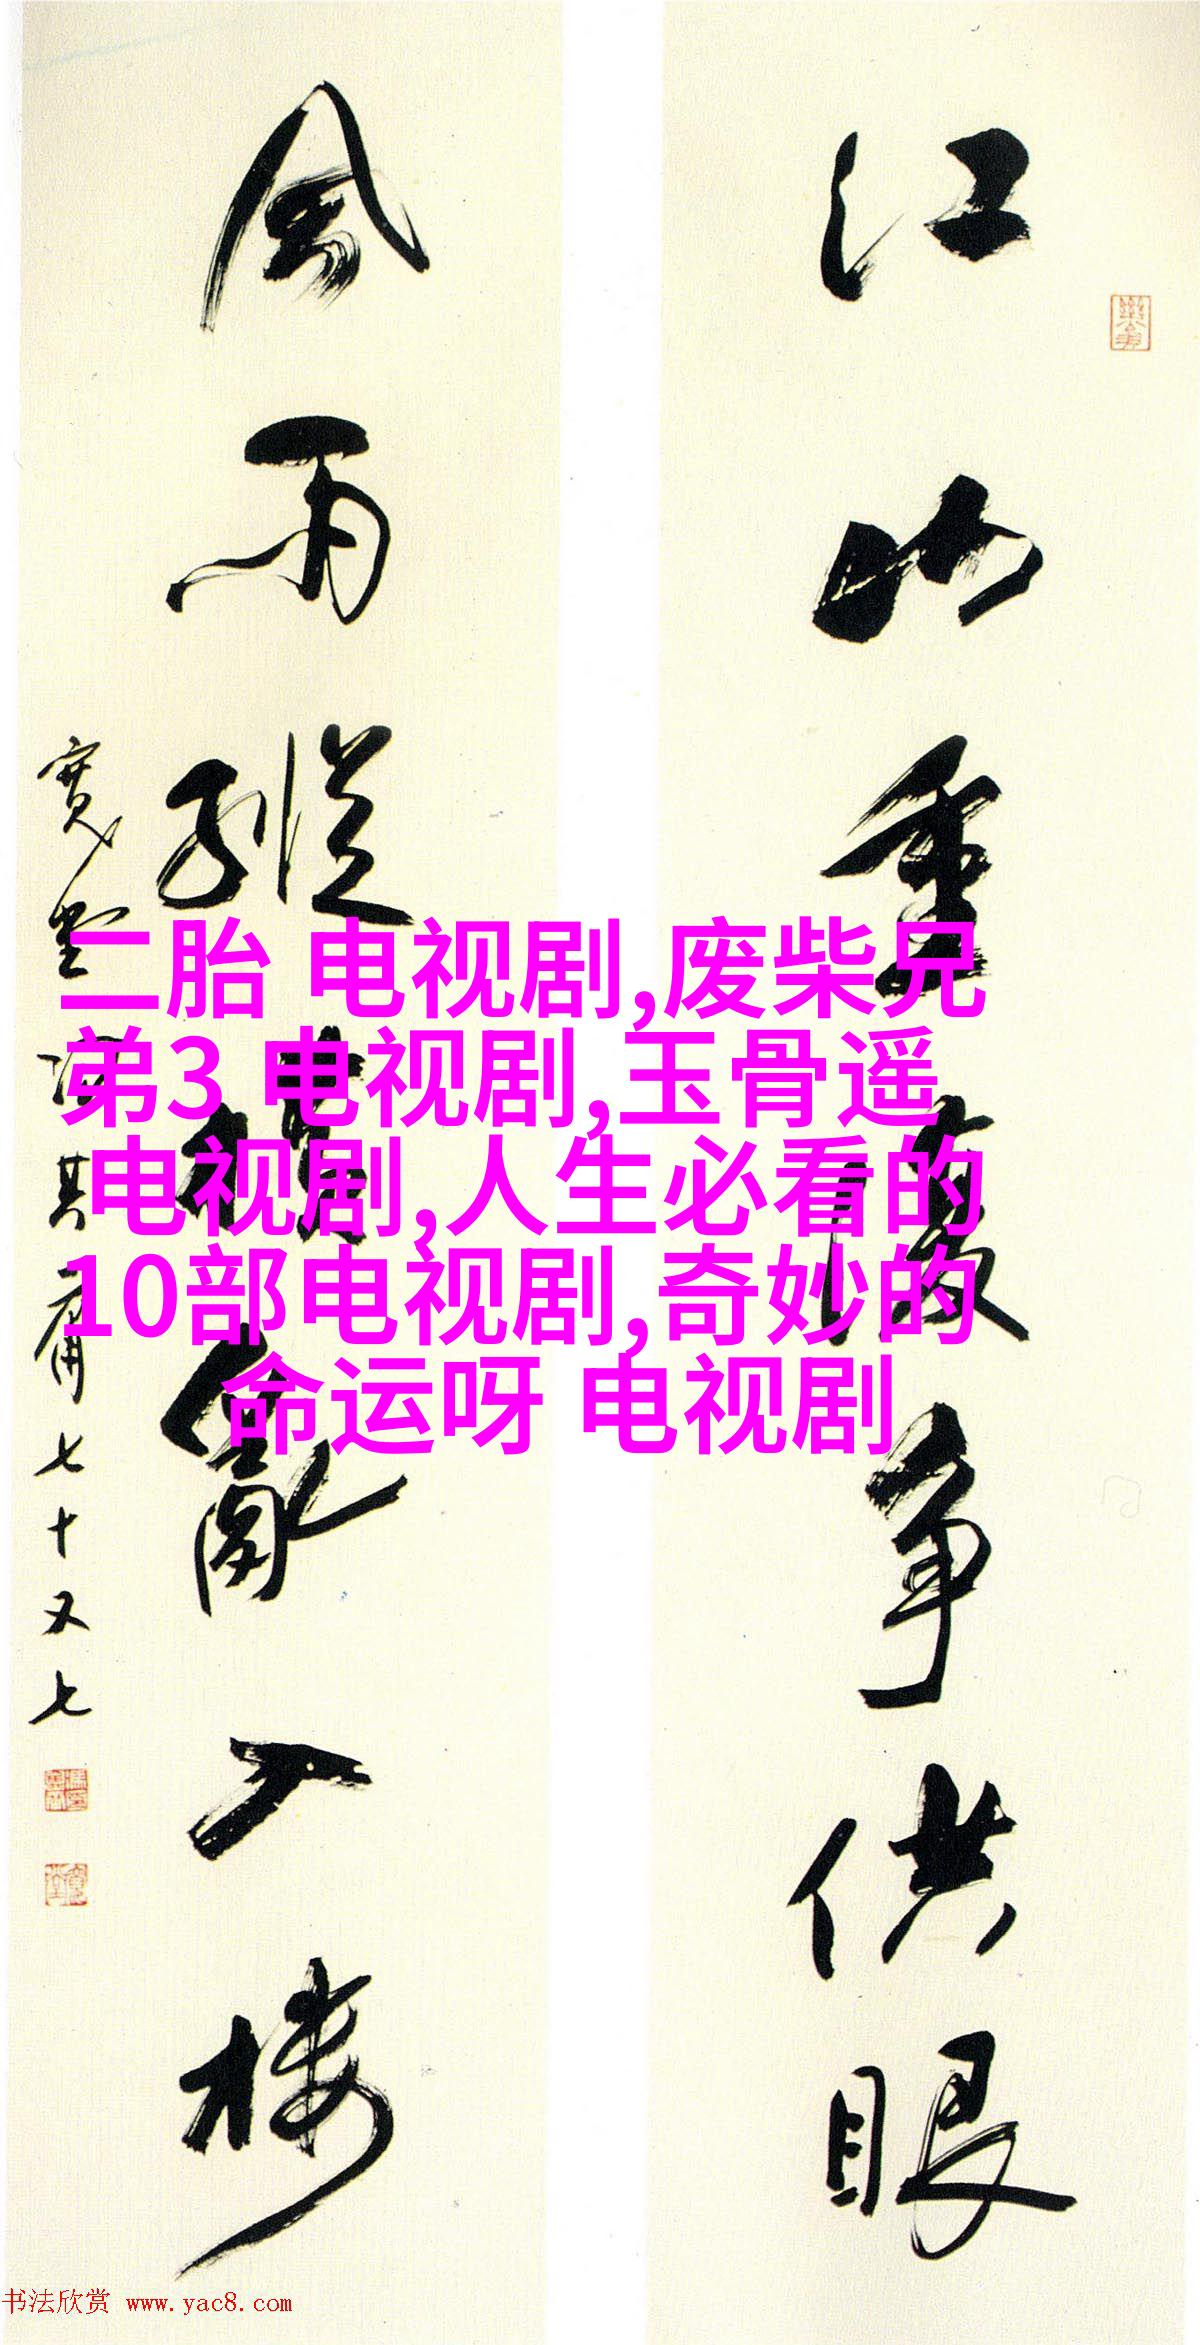 江山重復争供眼
風雨縱橫亂入楼
寬堂馮其庸七十又七
二胎 电视剧,废柴兄
弟3 电视剧,玉骨遥
电视剧,人生必看的
10部电视剧,奇妙的
命运呀 电视剧
书法欣赏 www.yac8.com